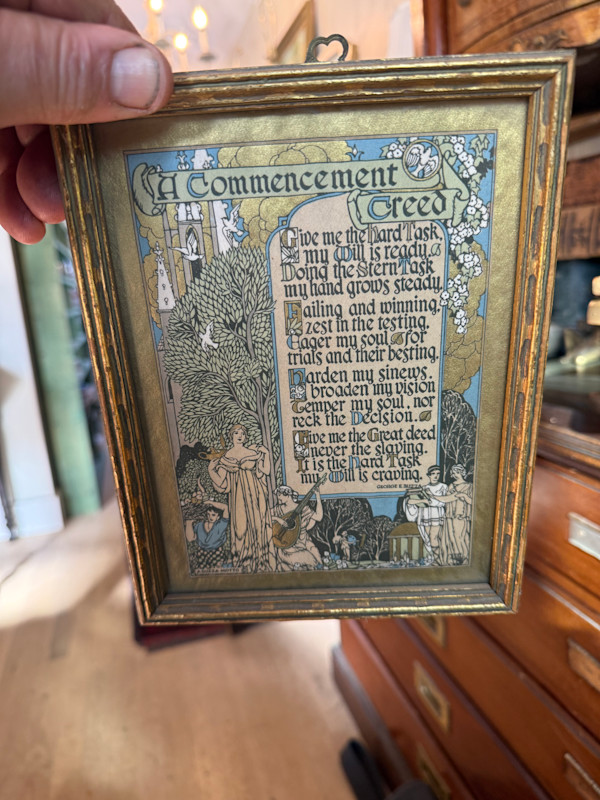 A Commencement
Creed
Give me the Hard Task
my Will is ready.
Doing the Stern Task
my hand grows steady.
Failing and winning.
zest in the testing.
Eager my soul for
trials and their besting.
Harden my sinews.
broaden my vision
Temper my soul, nor
reck the Decision.
Give me the Great deed
never the slaving.
It is the Hard Task
my Will is craving.
GEORGE E.